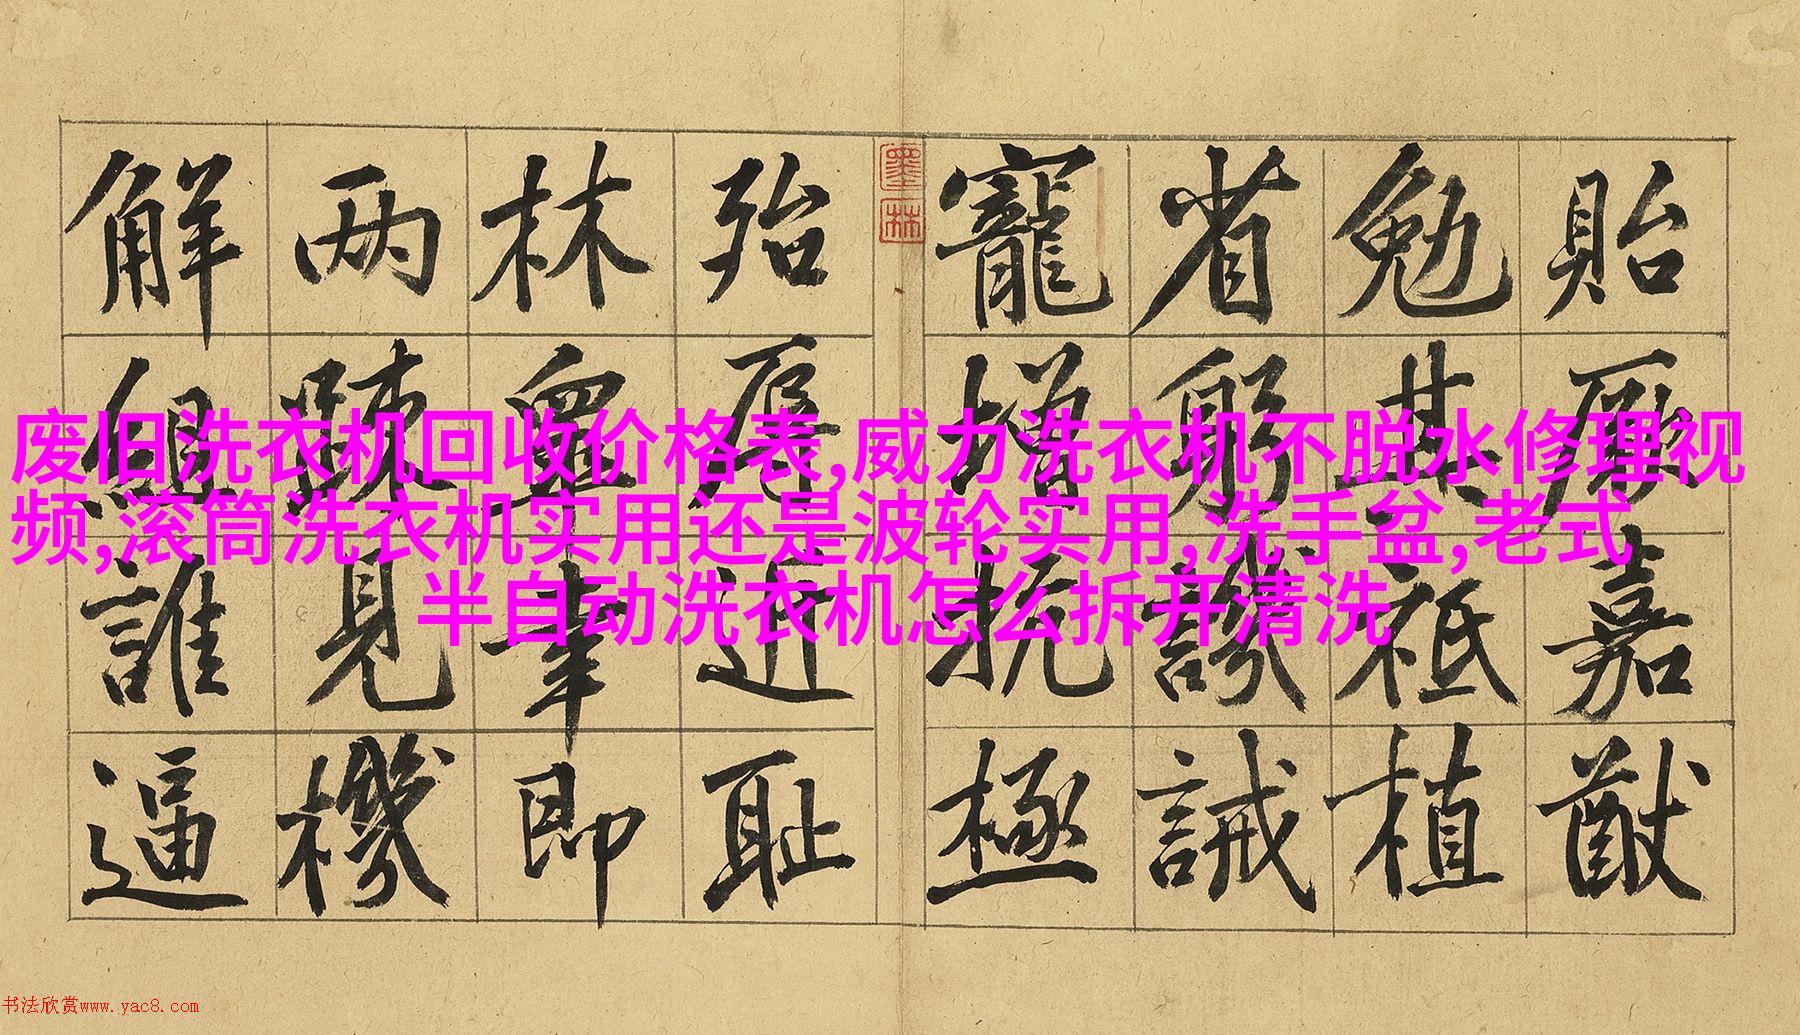 貽厥嘉猷
勉其祗植
省躬譏誡
寵增抗極
殆辱近耻
林皐幸即
两踈見機
解組誰逼
墨林
废旧洗衣机回收价格表,威力洗衣机不脱水修理视
频,滚筒洗衣机实用还是波轮实用,洗手盆,老式
半自动洗衣机怎么拆开清洗
书法欣赏www.yac8.com